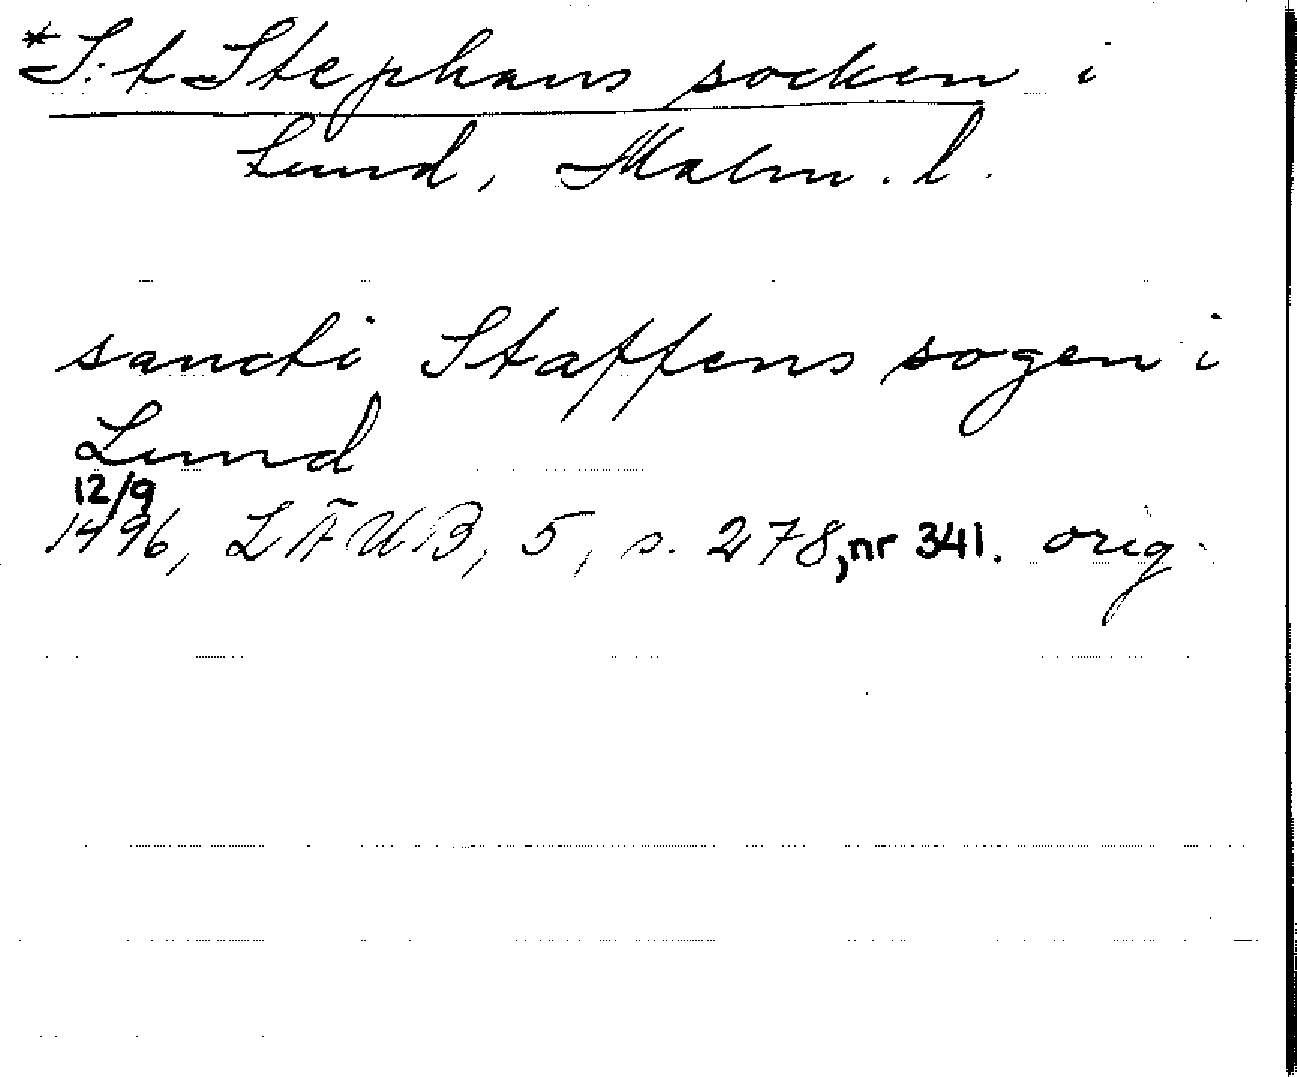 *S:t Stephans socken i
Lund, Malm. l.
sancti Staffens sogen i
Lund
12/9
1496, LÄUB, 5, s. 278, nr 341. orig.